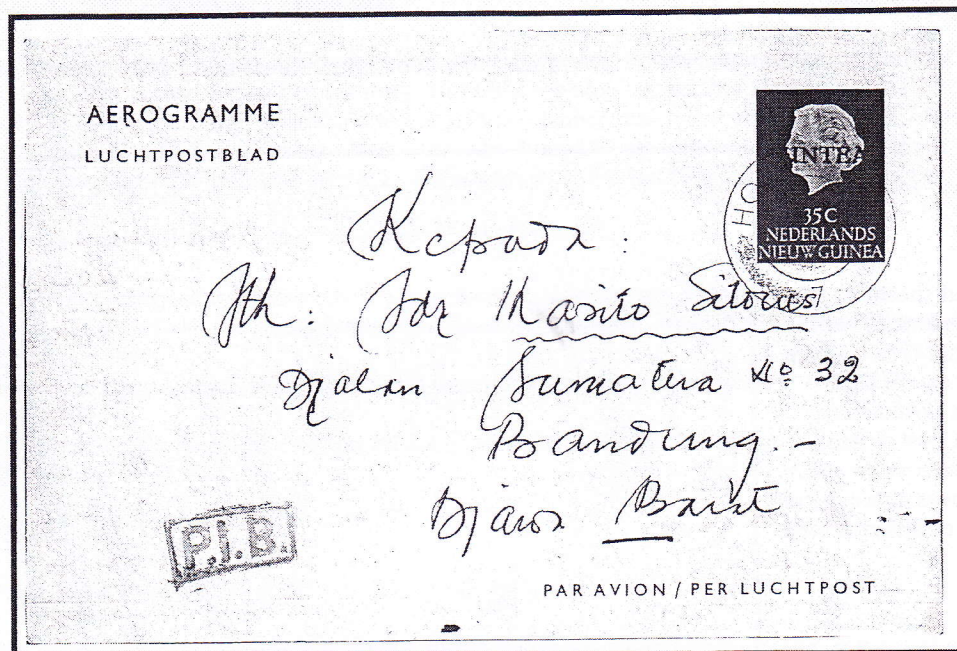 AEROGRAMME
LUCHTPOSTBLAD
UNTEA
35 C
NEDERLANDS
NIEUW GUINEA
HO
Kepada:
Jth: Sdr Masito Sitorus
Djalan Sumatera No 32
Bandung.-
Djawa Barat
P.I.B.
PAR AVION / PER LUCHTPOST